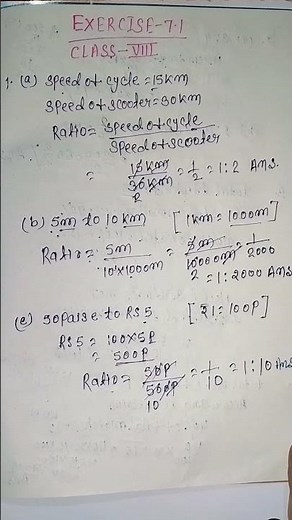 EXERCISE-7.1
CLASS-VIII
1. (a) Speed of cycle = 15km
Speed of scooter = 30km
Ratio = Speed of cycle / Speed of scooter
= 15km / 30km = 1/2 = 1:2 Ans.
2
(b) 5m to 10km [1km = 1000m]
Ratio = 5m / 10×1000m = 5m / 10000m = 1/2000
2 = 1:2000 Ans
(c) 50Paise to RS 5. [₹1 = 100P]
RS 5 = 100×5P
= 500P
Ratio = 50P / 500P = 1/10 = 1:10 Ans
10